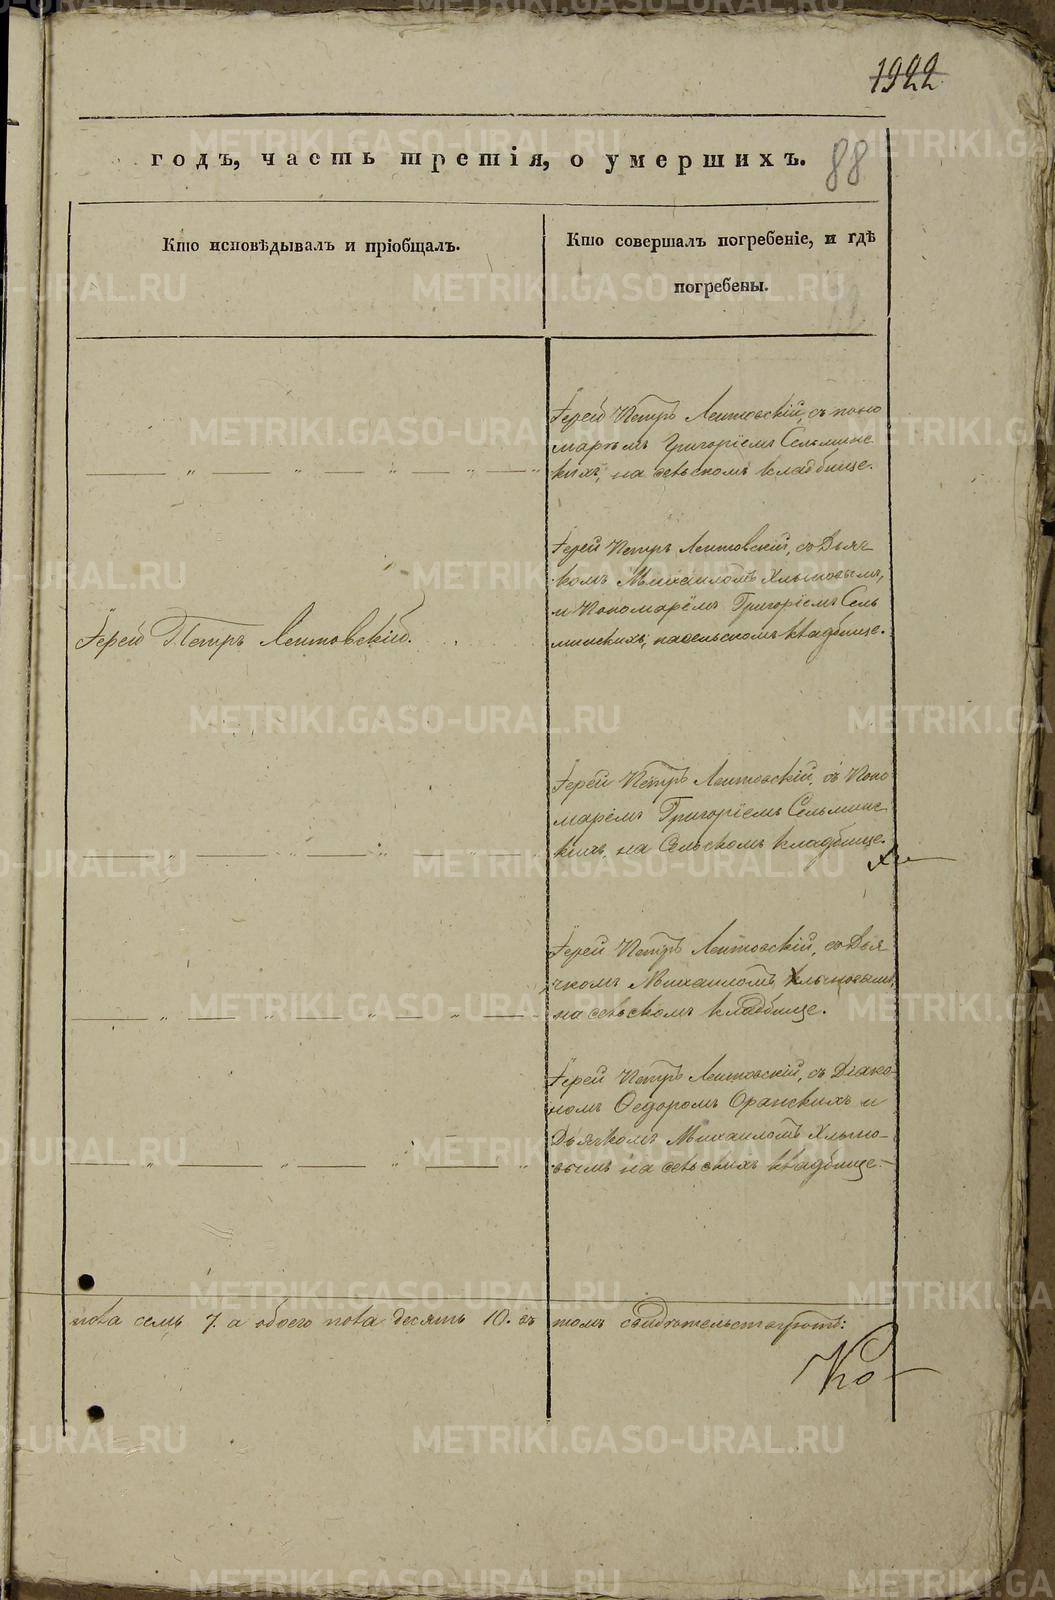 1922
годъ, часть третія, о умершихъ.
88
Кто исповѣдывалъ и пріобщалъ.
Кто совершалъ погребеніе, и гдѣ
погребены.
Іерей Петръ Лептовскій, съ поно
маремъ Григоріемъ Сельминс
кихъ, на сельскомъ кладбище.
Іерей Петръ Лептовскій, съ Дьяч
комъ Михаиломъ Хлыновымъ,
и Пономарёмъ Григоріемъ Сель
минскихъ, на сельскомъ кладбище.
Іерей Петръ Лептовскій.
Іерей Петръ Лептовскій, съ Поно
марёмъ Григоріемъ Сельминс
кихъ, на Сельскомъ кладбище.
Іерей Петръ Лептовскій, съ Дья
чкомъ Михаиломъ Хлыновымъ,
на сельскомъ кладбище.
Іерей Петръ Лептовскій, съ Діако-
номъ Ѳедоромъ Оранскихъ и
Дьячкомъ Михаиломъ Хлыно-
вымъ на сельскихъ кладбище.
пола семь 7. а обоего пола десять 10. въ томъ свидѣтельствуютъ:
METRIKI.GASO-URAL.RU